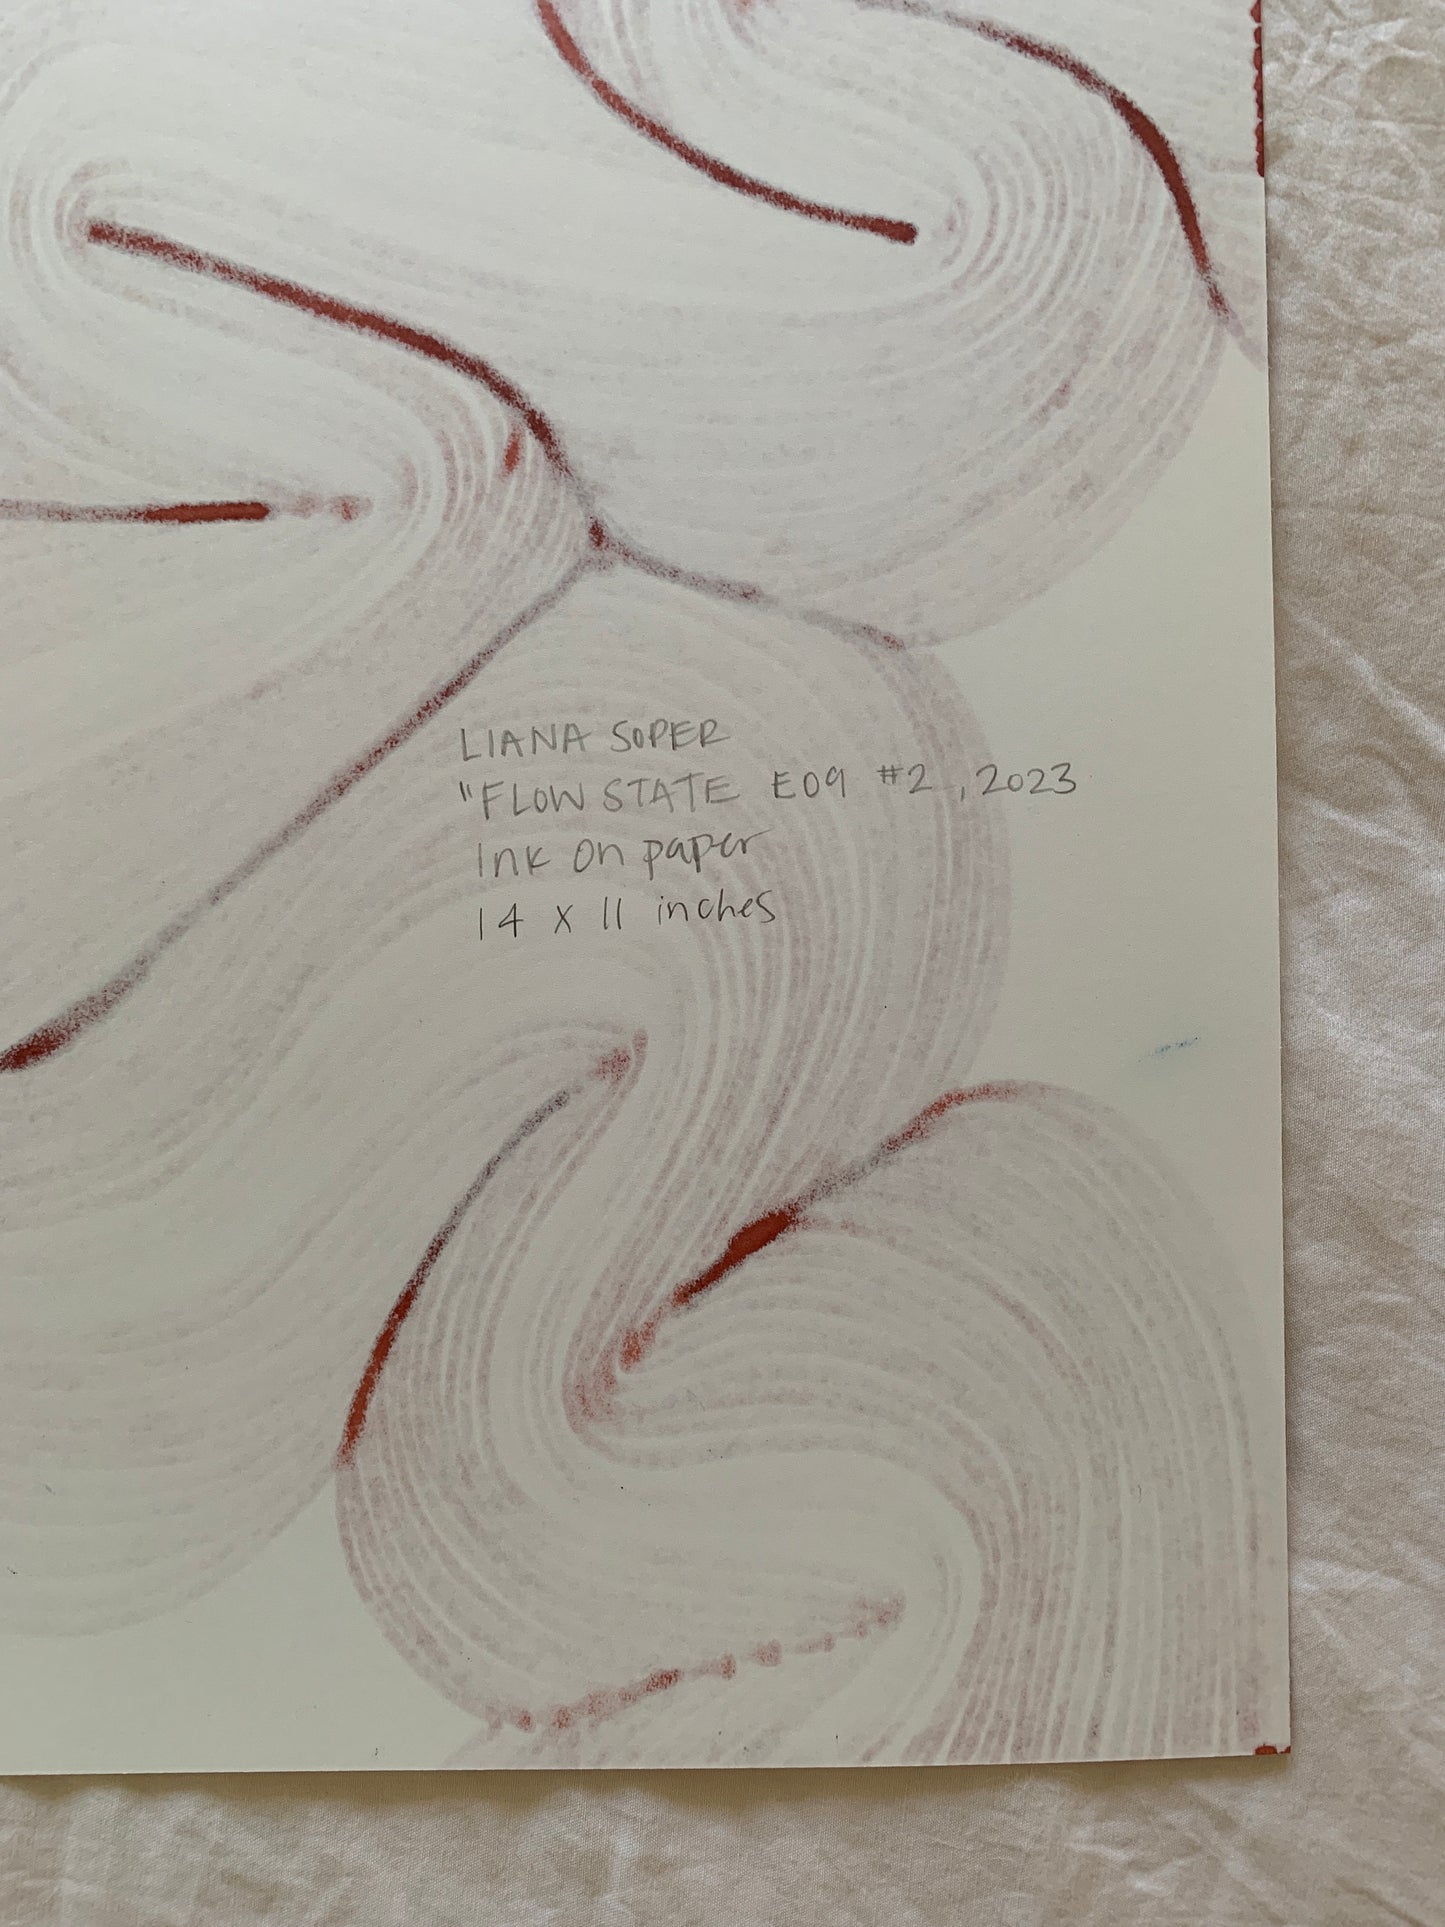 LIANA SOPER
"FLOW STATE E09 #2, 2023
Ink on paper
14 x 11 inches